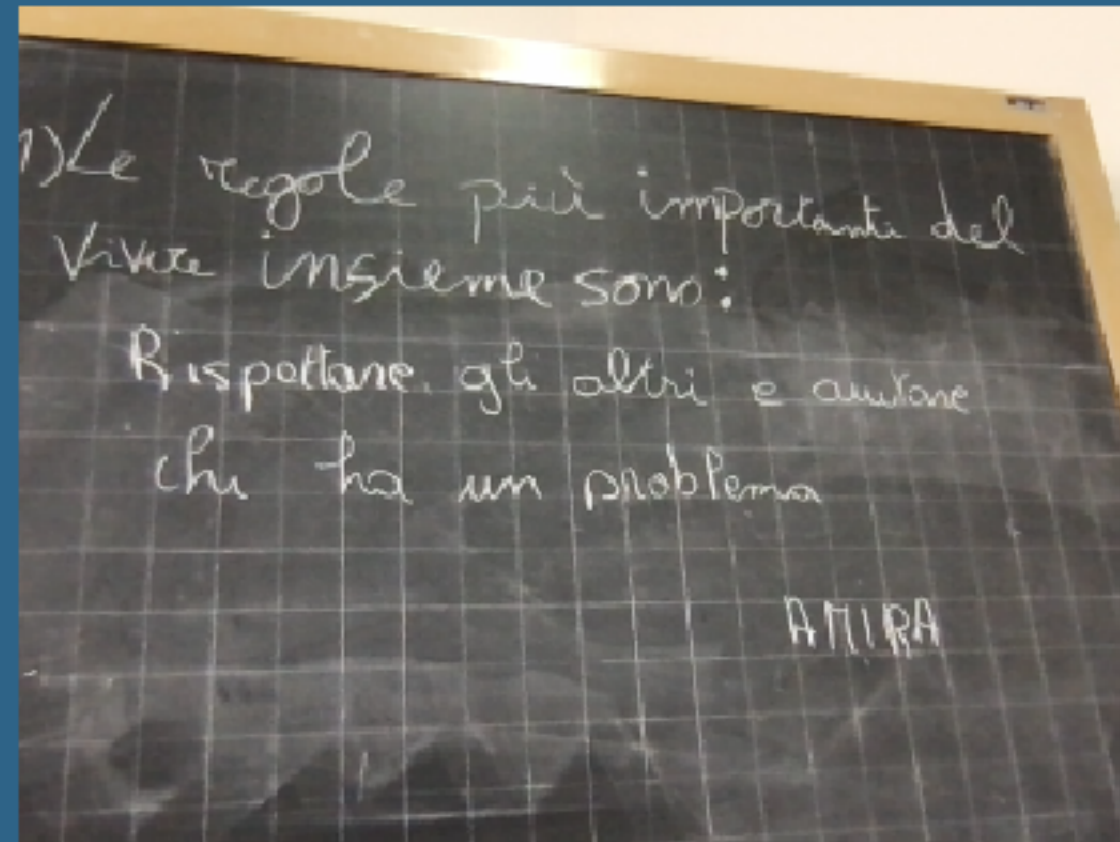 1) Le regole più importanti del
vivere insieme sono:
Rispettare gli altri e aiutare
chi ha un problema
AMIRA